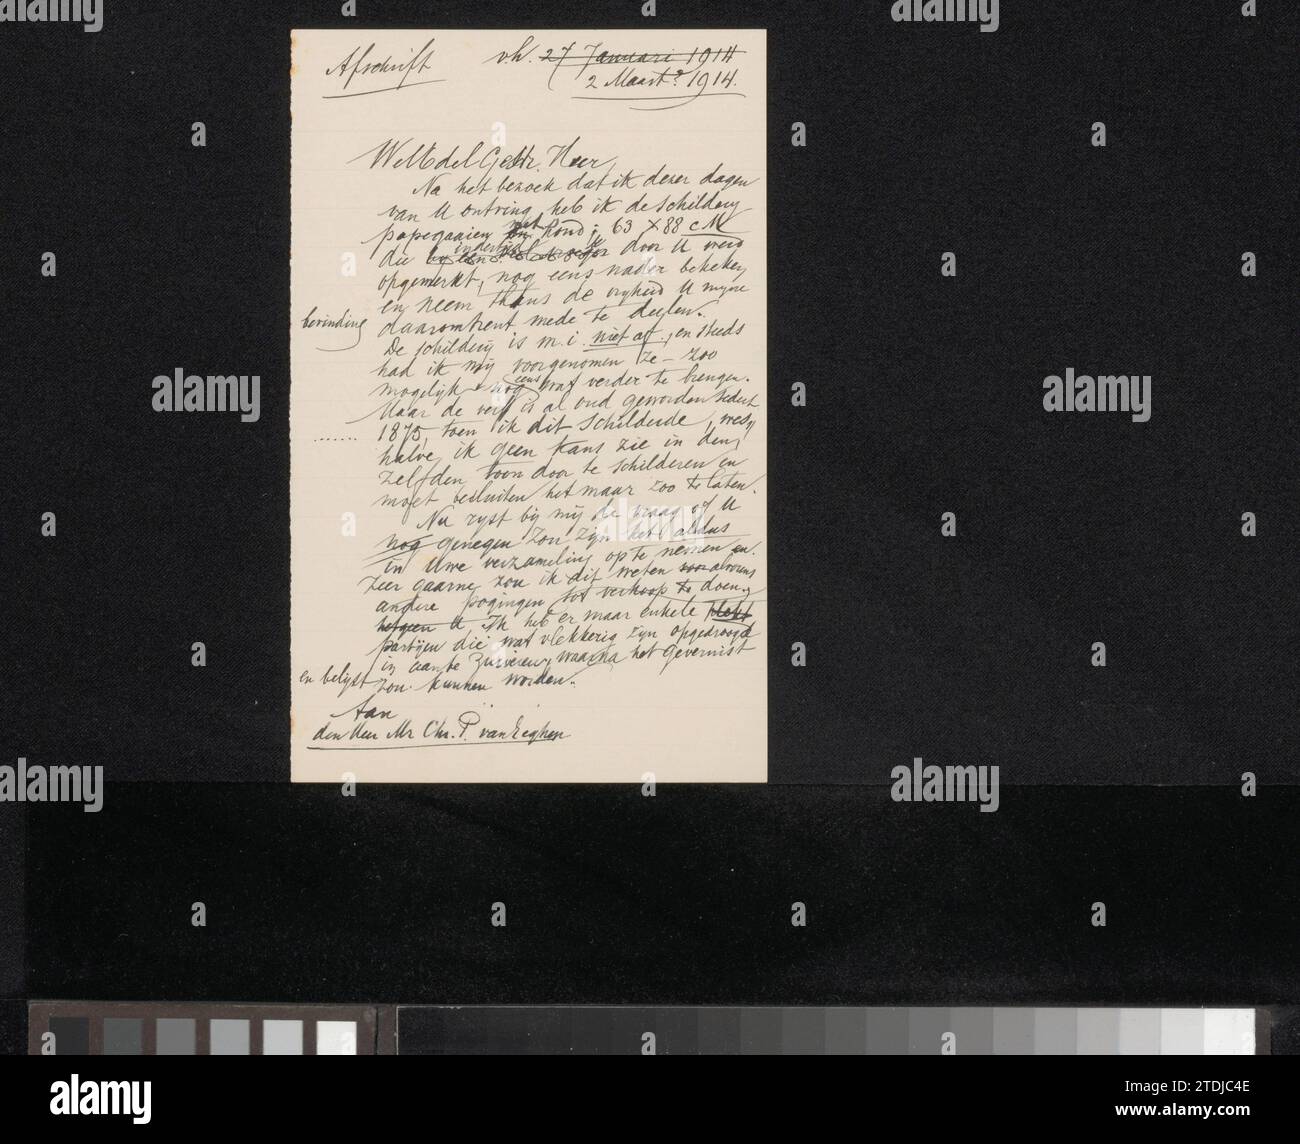 Afschrift v.h. 27 Januari 1914
2 Maart 1914.
WelEdel Gestr. Heer,
Na het bezoek dat ik dezer dagen
van U ontving heb ik de schildery
papegaaien met hond; 63 X 88 cM
die indertijd door U werd
opgemerkt, nog eens nader bekeken
en neem thans de vryheid U myne
bevinding daaromtrent mede te deelen.
De schildery is m.i. niet af, en steeds
had ik my voorgenomen ze - zoo
mogelyk - nog eens wat verder te brengen.
Maar de verf is al oud geworden sedert
...... 1875, toen ik dit schilderde, wes-
halve ik geen kans zie in den
zelfden toon door te schilderen en
moet besluiten het maar zoo te laten.
Nu ryst by my de vraag of U
nog genegen zou zyn het aldus
in Uwe verzameling op te nemen en
zeer gaarne zou ik dit weten alvorens
andere pogingen tot verkoop te doen.
hetgeen U Ik heb er maar enkele
partyen die wat vlekkerig zyn opgedroogd
in aan te zuiveren, waarna het gevernist
en belyst zou kunnen worden.
Aan
den Heer Mr Chr. P. van Eeghen
alamy
Image ID: 2TDJC4E
www.alamy.com